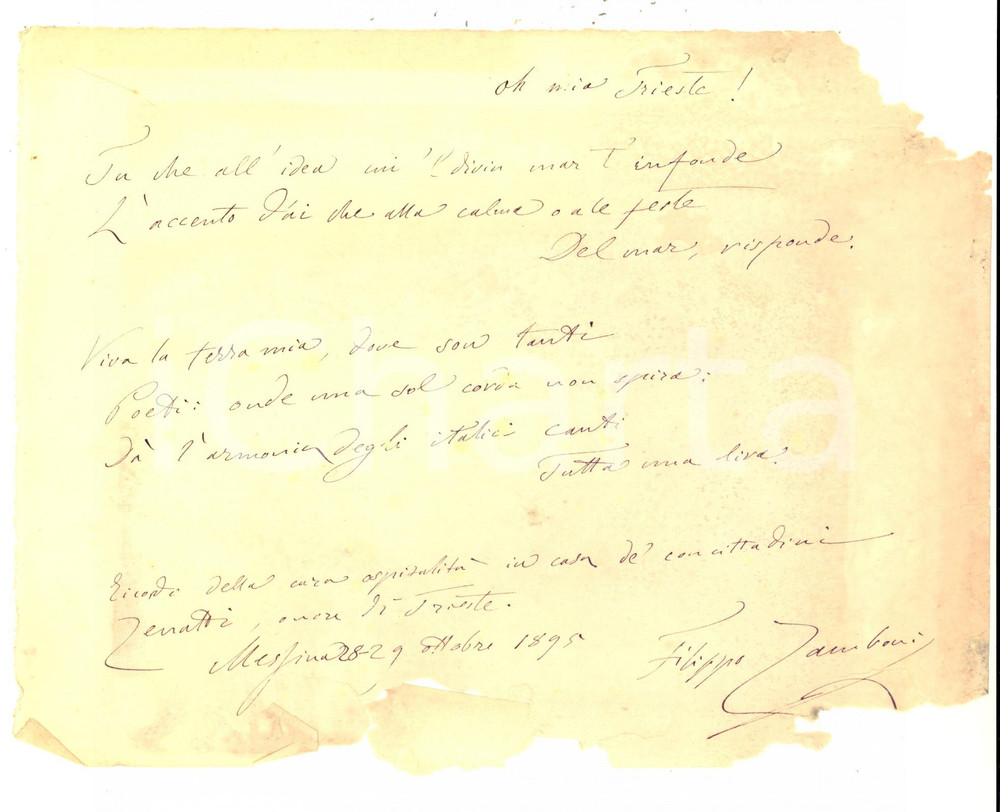 Oh mia Trieste!
Tu che all' idea un' divin mar T' infonde
L' accento d'ai che alla calma o a le feste
Del mar, risponde.
Viva la terra mia, dove son tanti
Poeti: onde una sol corda non spira:
Dà l' armonia degli italici canti
Tutta una lira.
Ricordo della cara ospitalità in casa de' concittadini
Zenatti, onore di Trieste.
Messina 28-29 ottobre 1895
Filippo Zamboni
iCharta